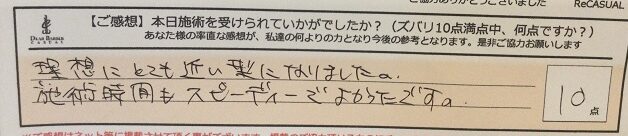 ReCASUAL
【ご感想】本日施術を受けられていかがでしたか?(ズバリ10点満点中、何点ですか?)
あなた様の率直な感想が、私達の何よりの力となり今後の参考となります。是非ご協力お願いします
DEAR BARBER
CASUAL
理想にとても近い髪になりました。
施術時間もスピーディーでよかったです。
10点